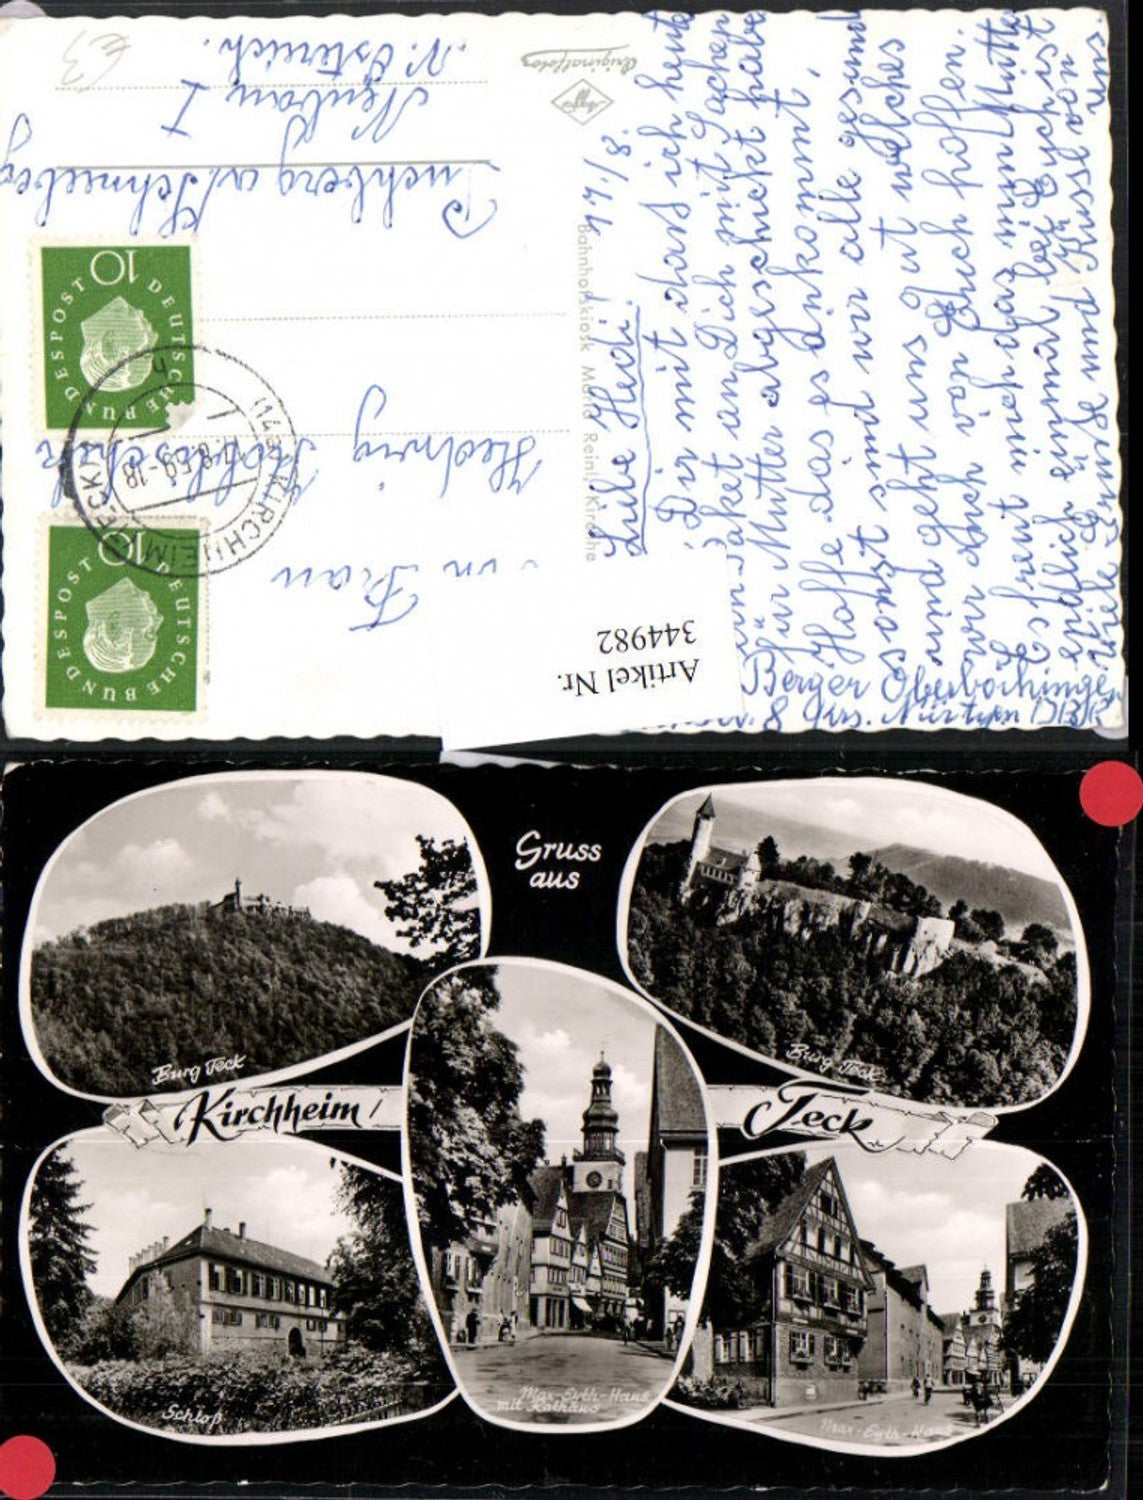 Originalfotos
Agfa
Bahnhofskiosk Maria Reinl, Kirchhe
11./8.
Liebe Hedi!
Dir mit das ich heute
Paket an Dich mit Sachen
für Mutter abgeschickt habe
Hoffe das es ankommt,
sonst sind wir alle gesund
und geht uns gut welches
wir auch von Euch hoffen.
Es freut mich das nun Mutter
endlich einmal bei Euch ist
Viele Grüße und Küsse von uns
Berger Oberboihingen
Krs. Nürtgn DBR
Frau
Hedwig
Puchberg a/Schneeberg
Neubau I
N. Östereich.
€3
DEUTSCHE BUNDESPOST
10
DEUTSCHE BUNDESPOST
10
(14a) KIRCHHEIM (TECK)
11.8.59-18
Artikel Nr.
344982
Gruss
aus
Kirchheim / Teck
Burg Teck
Burg Teck
Schloß
Max-Eyth-Haus
mit Rathaus
Max-Eyth-Haus